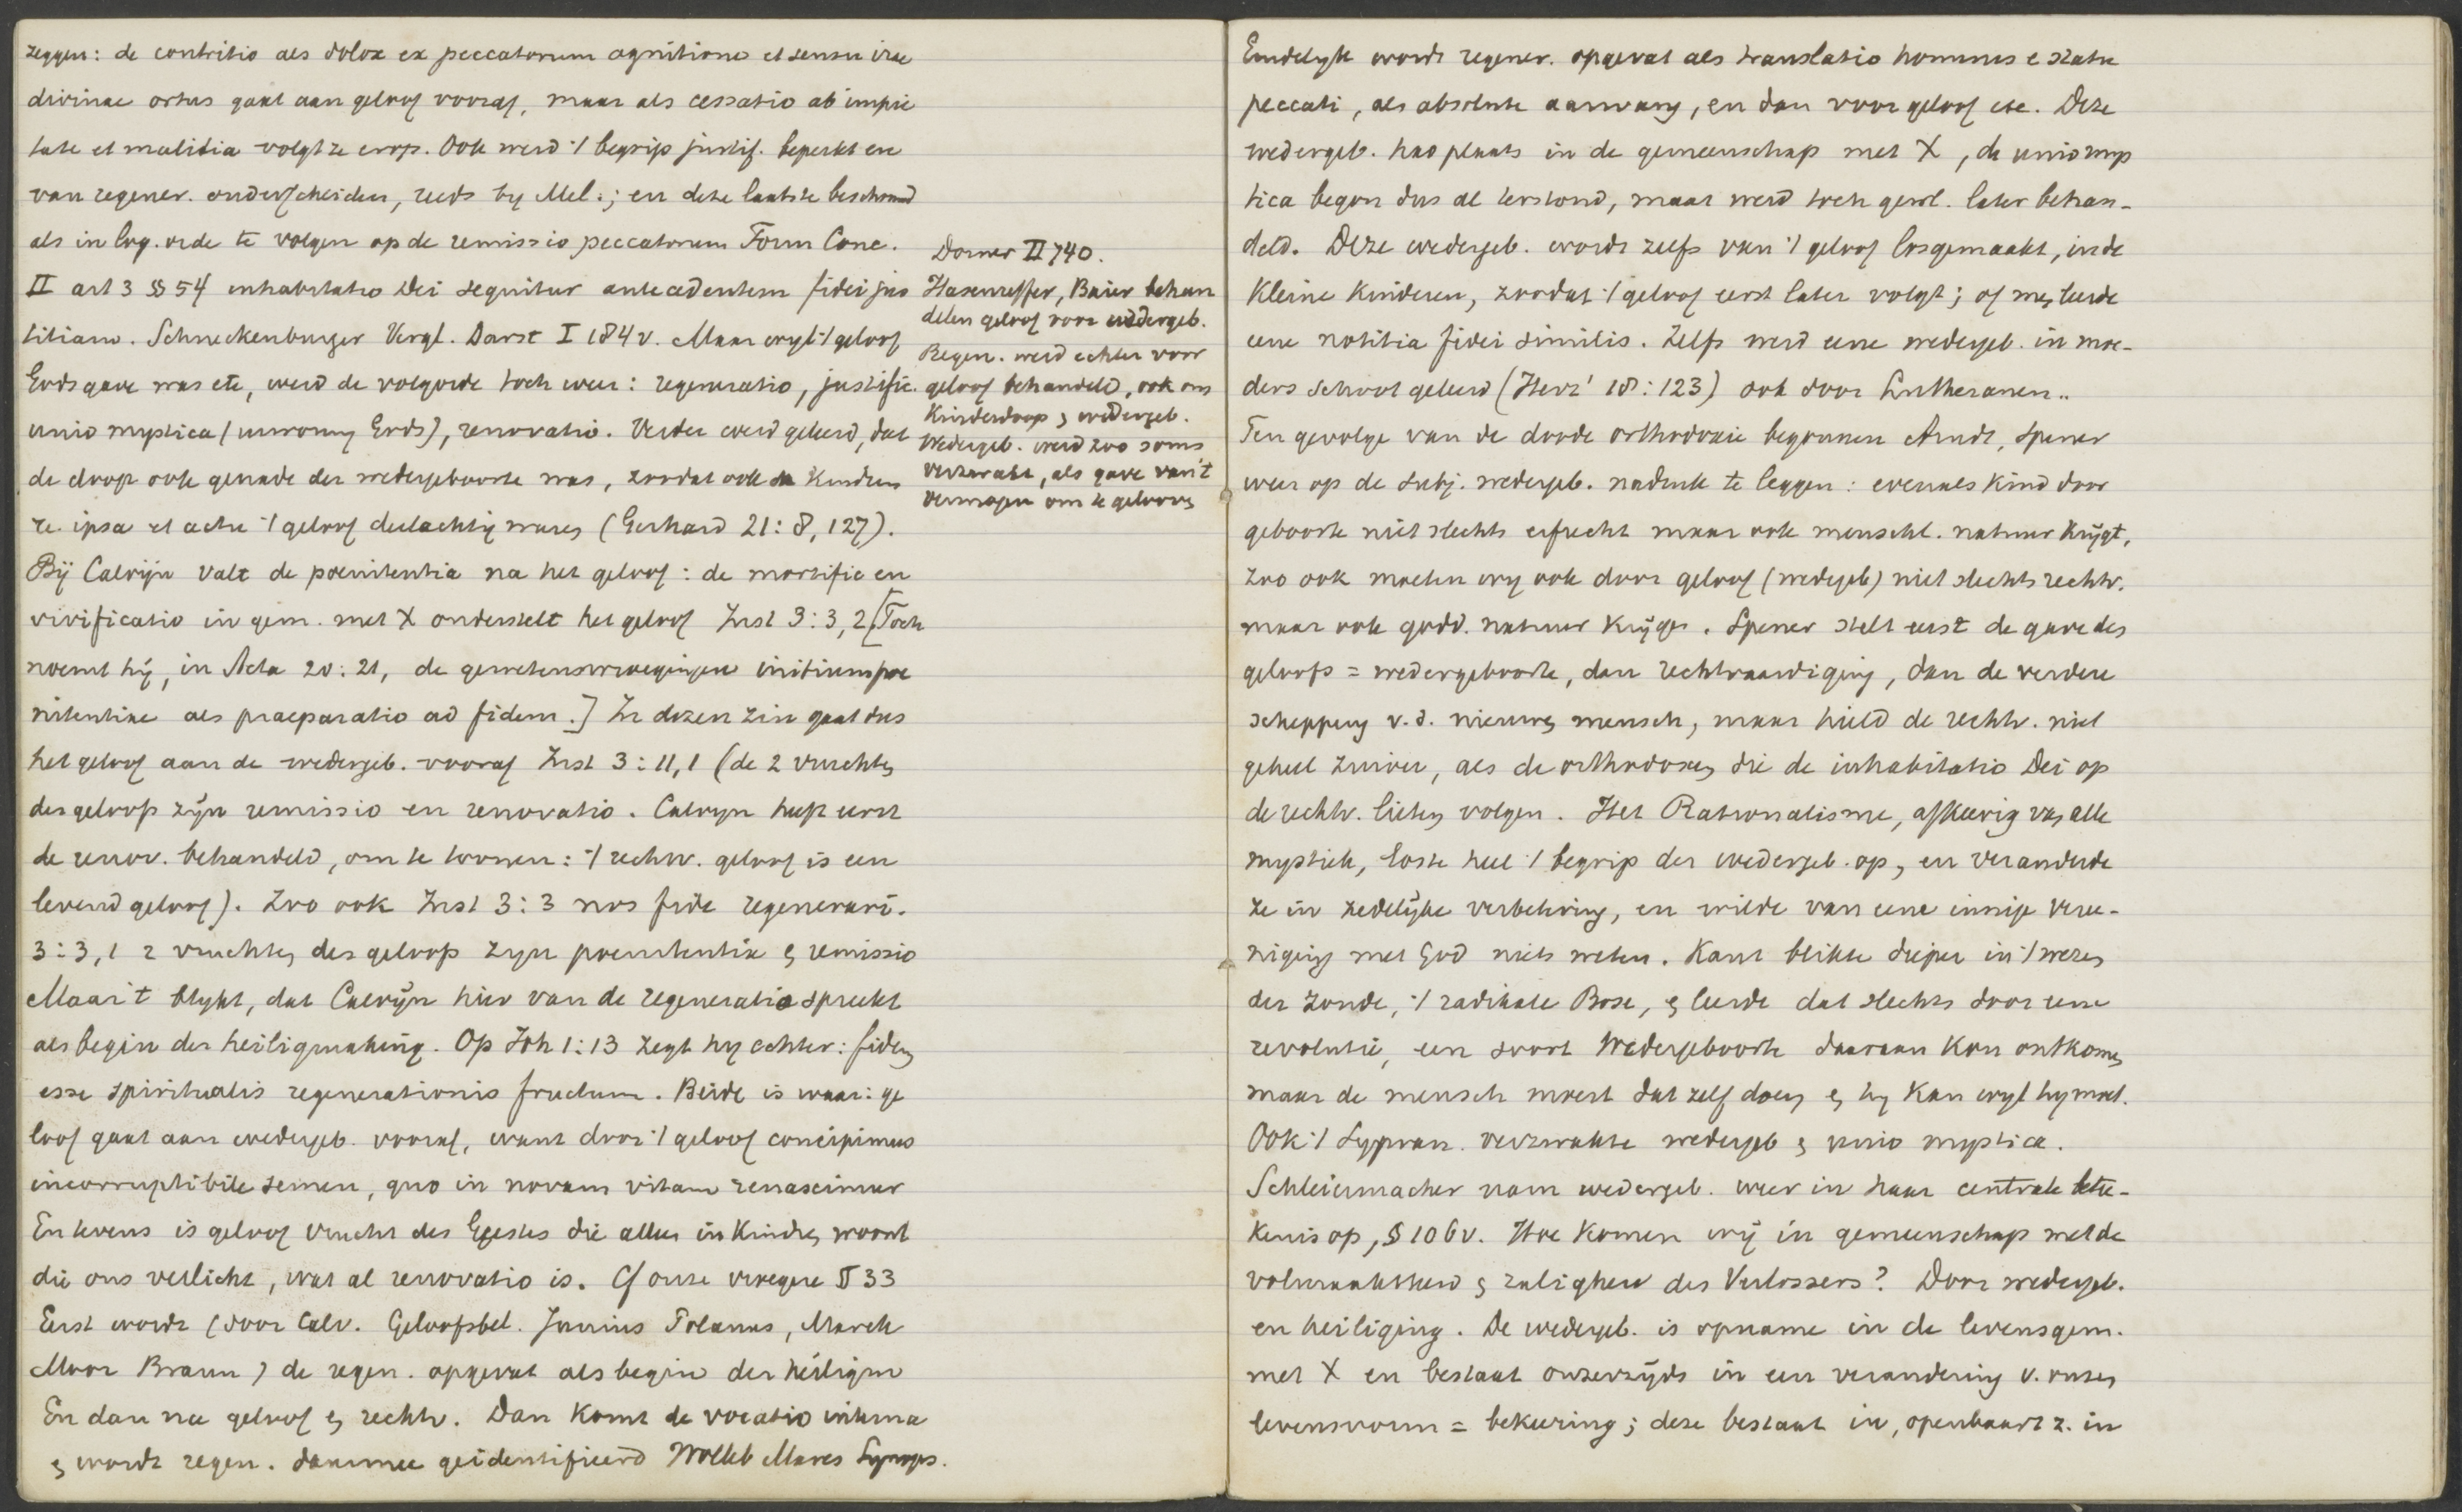 zeggen: de contritio als dolor ex peccatorum agnitione et sensu irae
divinae ortus gaat aan geloof vooraf, maar als cessatio ab impie
tate et malitia volgt ze erop. Ook werd 't begrip justif. beperkt en
van regener. onderscheiden, reeds by Mel.; en deze laatste beschouwd
als in log. orde te volgen op de remissio peccatorum Form Conc.
II art 3 §§ 54 inhabitatio Dei sequitur antecedentem fidei jus
titiam. Schneckenburger Vergl. Darst I 184 v. Maar wyl 't geloof
Gods gave was etc, werd de volgorde toch weer: regeneratio, justific.
unio mystica (inwoning Gods), renovatio. Verder werd geleerd, dat
de doop ook genade der wedergeboorte was, zoodat ook de Kinderen
re ipsa et actu 't geloof deelachtig waren (Gerhard 21: 8, 127).
Dorner II 740.
Hasenreffer, Baier behan
delen geloof voor wedergeb.
Regen. werd echter voor
geloof behandeld, ook om
Kinderdoop & wedergeb.
Wedergeb. werd zoo soms
verzwakt, als gave van 't
vermogen om te gelooven
Bij Calvijn valt de poenitentia na het geloof: de mortific en
vivificatio in gem. met X onderstelt het geloof Inst 3: 3, 2 [Toch
noemt hij, in Acta 20: 21, de gewetensoverwegingen initium poe
nitentiae als praeparatio ad fidem.] In dezen zin gaat dus
het geloof aan de wedergeb. vooraf Inst 3: 11, 1 (de 2 vruchten
des geloofs zijn remissio en renovatio. Calvyn heeft eerst
de renov. behandeld, om te toonen: 't rechtv. geloof is een
levend geloof). Zoo ook Inst 3: 3 nos fide regenerari.
3: 3, 1 2 vruchten des geloofs zyn poenitentia & remissio
Maar 't blykt, dat Calvijn hier van de regeneratio spreekt
als begin der heiligmaking. Op Joh 1: 13 zegt hy echter: fidem
esse spiritualis regenerationis fructum. Beide is waar: ge
loof gaat aan wedergeb. vooraf, want door 't geloof concipimus
incorruptibile semen, quo in novam vitam renascimur
En tevens is geloof vrucht des Geestes die alleen in Kindren woont
die ons verlicht, wat al renovatio is. Cf onze vroegere § 33
Eerst wordt (door Calv. Geloofsbel. Junius Polanus, Marck
Moor Braun) de regen. opgevat als begin der heiligm
En dan na geloof & rechtv. Dan komt de vocatio interna
& wordt regen. daarmee geidentificeerd Wolleb Mares Synops.
Eindelyk wordt regener. opgevat als translatio hominis e statu
peccati, als absolute aanvang, en dan voor geloof etc. Deze
wedergeb. had plaats in de gemeenschap met X, de unio mys
tica begon dus al terstond, maar werd toch gewl. later behan-
deld. Deze wedergeb. wordt zelfs van 't geloof losgemaakt, in de
Kleine Kinderen, zoodat 't geloof eerst later volgt; of men leerde
eene notitia fidei similis. Zelfs werd eene wedergeb. in moe-
ders schoot geleerd (Herz' 18: 123) ook door Lutheranen..
Ten gevolge van de doode orthodoxie begonnen Arndt, Spener
weer op de subj. wedergeb. nadruk te leggen: evenals Kind door
geboorte niet slechts erfrecht maar ook menschl. natuur Krijgt,
zoo ook moeten wy ook door geloof (wedergeb) niet slechts rechtv.
maar ook godd. natuur Krijgen. Spener stelt eerst de gave des
geloofs = wedergeboorte, dan rechtvaardiging, dan de verdere
schepping v. d. nieuwen mensch, maar hield de rechtv. niet
geheel zuiver, als de orthodoxen die de inhabitatio Dei op
de rechtv. lieten volgen. Het Rationalisme, afkeerig van alle
mystiek, loste heel 't begrip der wedergeb. op, en veranderde
ze in zedelijke verbetering, en wilde van eene innige veree-
niging met God niets weten. Kant blikte dieper in 't wezen
der zonde, 't radikale Böse, & leerde dat slechts door eene
revolutie, een soort Wedergeboorte daaraan Kon ontkomen
maar de mensch moest dat zelf doen & hy Kan wyl hy moet.
Ook 't Supran. verzwakte wedergeb & unio mystica.
Schleiermacher nam wedergeb. weer in haar centrale betee-
kenis op, § 106 v. Hoe Komen wij in gemeenschap met de
volmaaktheid & zaligheid des Verlossers? Door wedergeb.
en heiliging. De wedergeb. is opname in de levensgem.
met X en bestaat onzerzijds in een verandering v. onzen
levensvorm = bekeering; deze bestaat in, openbaart z. in